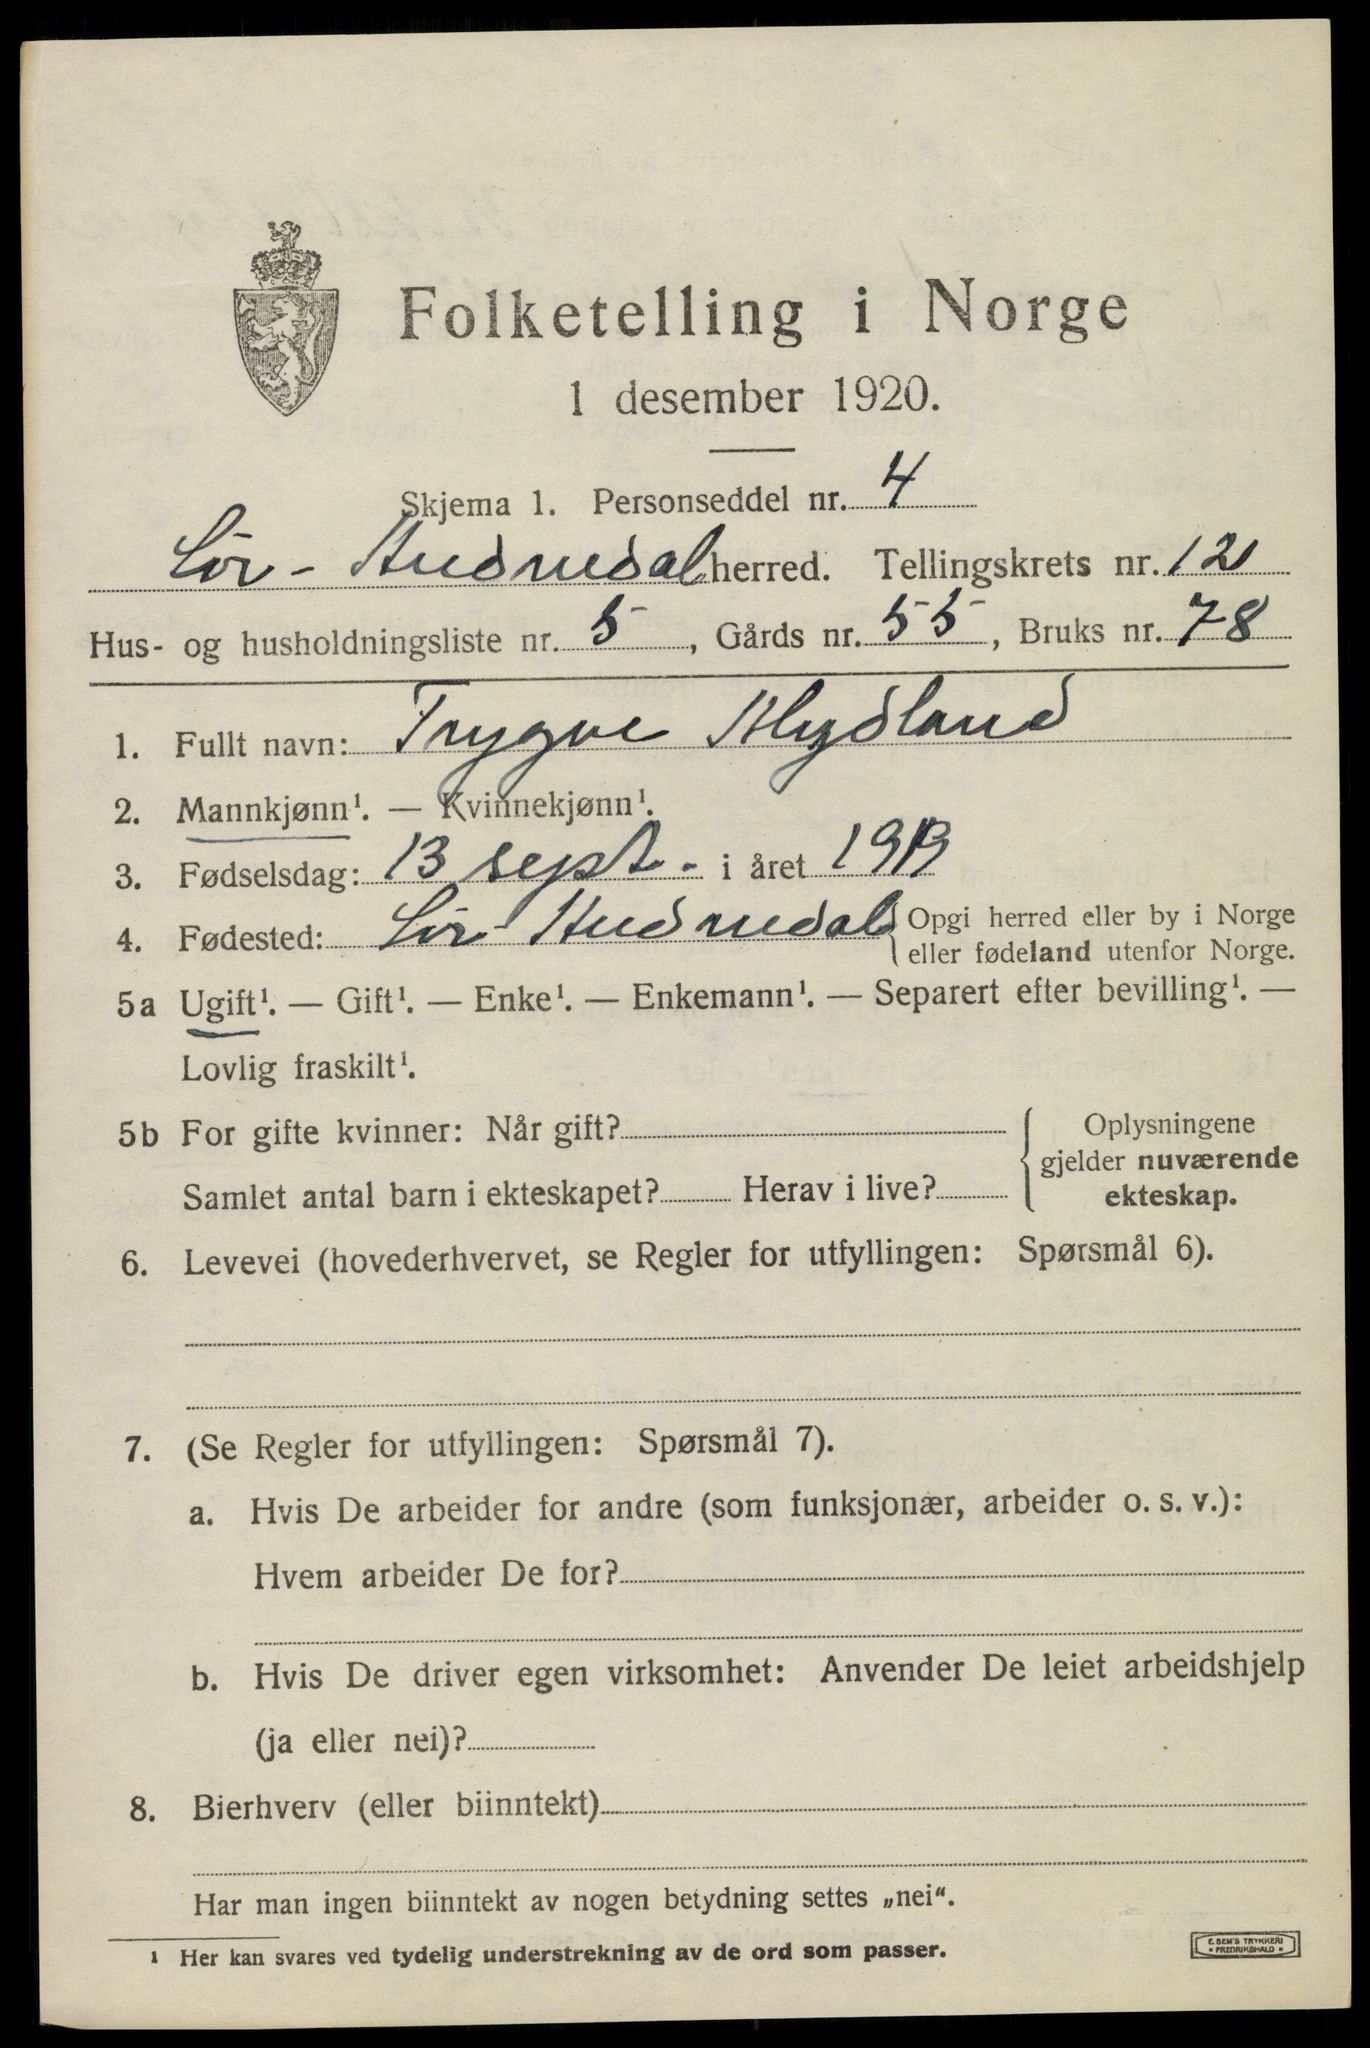 Folketelling i Norge
1 desember 1920.
Skjema 1. Personseddel nr. 4
Sör-Audnedal herred. Tellingskrets nr. 12
Hus- og husholdningsliste nr. 5, Gårds nr. 55, Bruks nr. 78
1. Fullt navn: Trygve
2. Mannkjønn¹. — Kvinnekjønn¹.
3. Fødselsdag: 13 sept. i året 1919
4. Fødested: Sör-Audnedal { Opgi herred eller by i Norge
eller fødeland utenfor Norge.
5a Ugift¹. — Gift¹. — Enke¹. — Enkemann¹. — Separert efter bevilling¹. —
Lovlig fraskilt¹.
5b For gifte kvinner: Når gift?
Samlet antal barn i ekteskapet? Herav i live?
Oplysningene
gjelder nuværende
ekteskap.
6. Levevei (hovederhvervet, se Regler for utfyllingen: Spørsmål 6).
7. (Se Regler for utfyllingen: Spørsmål 7).
a. Hvis De arbeider for andre (som funksjonær, arbeider o. s. v.):
Hvem arbeider De for?
b. Hvis De driver egen virksomhet: Anvender De leiet arbeidshjelp
(ja eller nei)?
8. Bierhverv (eller biinntekt)
Har man ingen biinntekt av nogen betydning settes „nei“.
¹ Her kan svares ved tydelig understrekning av de ord som passer.
E. SEM'S TRYKKERI
• FREDRIKSHALD •